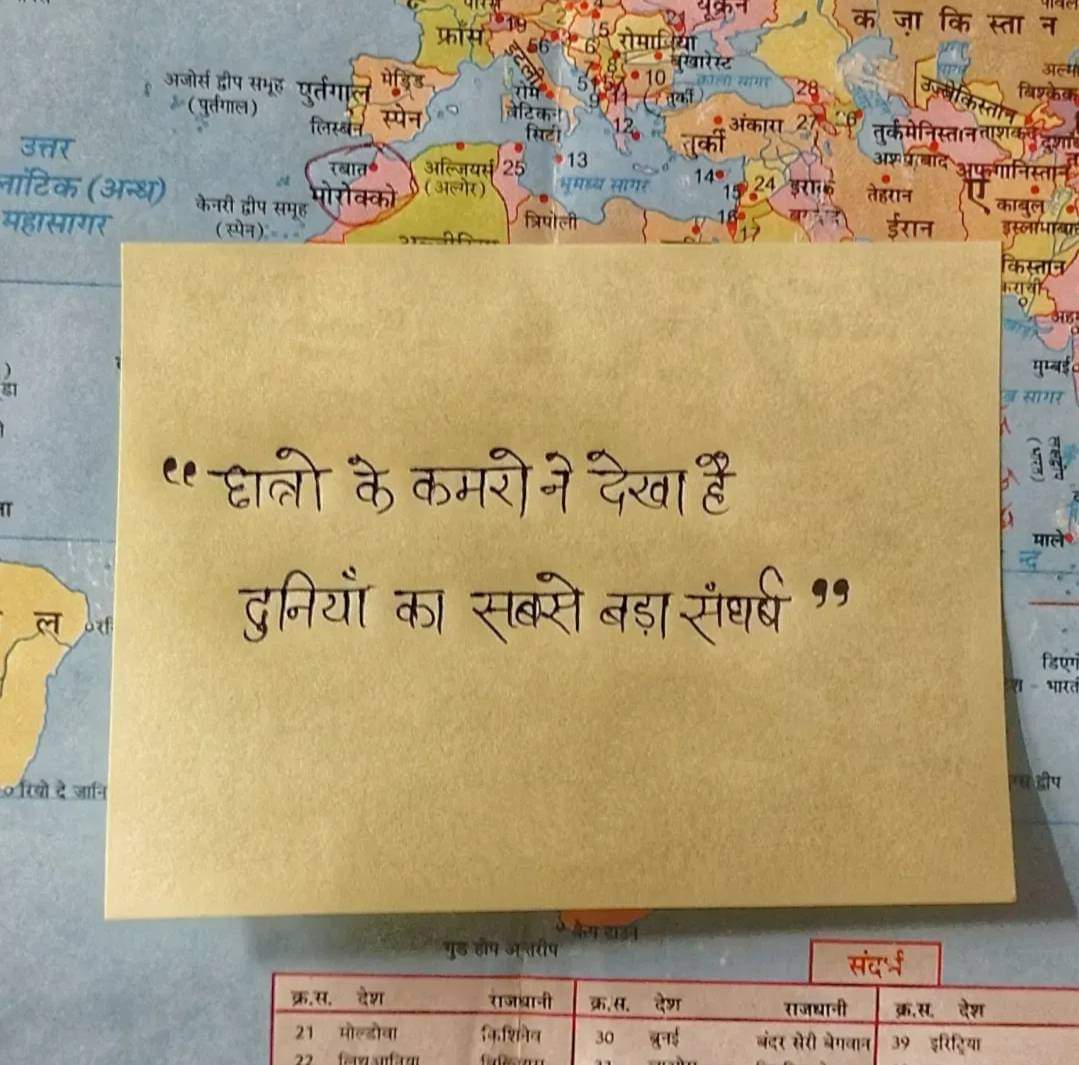 पेरिस
यूक्रेन
फ्रांस
19
क ज़ा कि स्ता न
56
इटली
5
6
रोमानिया
बुखारेस्ट
काला सागर
अजोर्स द्वीप समूह
(पुर्तगाल)
पुर्तगाल
मेड्रिड
रोम
10
(तुर्की)
28
उज्बेकिस्तान
बिश्केक
लिस्बन
स्पेन
वेटिकन
सिटी
12
तुर्की
अंकारा
27
तुर्कमेनिस्तान
उत्तर
रबात
मोरोक्को
अल्जियर्स
(अल्गेर)
25
13
भूमध्य सागर
14
15
24
इराक
तेहरान
अफगानिस्तान
(अन्ध)
महासागर
केनरी द्वीप समूह
(स्पेन)
त्रिपोली
16
17
ईरान
काबुल
ए
किस्तान
कराची
मुम्बई
सागर
“छात्रो के कमरो ने देखा है
दुनियाँ का सबसे बड़ा संघर्ष”
माले
ल
भारत
रियो दे जानि
द्वीप
केप टाउन
गुड होप अन्तरीप
संदर्भ
क्र.स. देश राजधानी क्र.स. देश राजधानी क्र.स. देश
21 मोल्डोवा किशिनेव 30 ब्रुनई बंदर सेरी बेगवान 39 इरिट्रिया
22